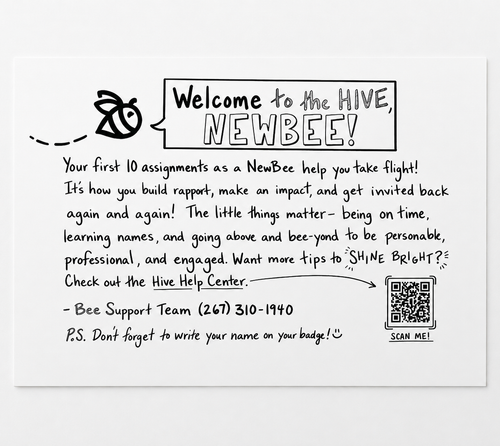 Welcome to the HIVE,
NEWBEE!
Your first 10 assignments as a NewBee help you take flight!
It's how you build rapport, make an impact, and get invited back
again and again! The little things matter – being on time,
learning names, and going above and bee-yond to be personable,
professional, and engaged. Want more tips to SHINE BRIGHT?
Check out the Hive Help Center.
- Bee Support Team (267) 310-1940
P.S. Don't forget to write your name on your badge!
SCAN ME!